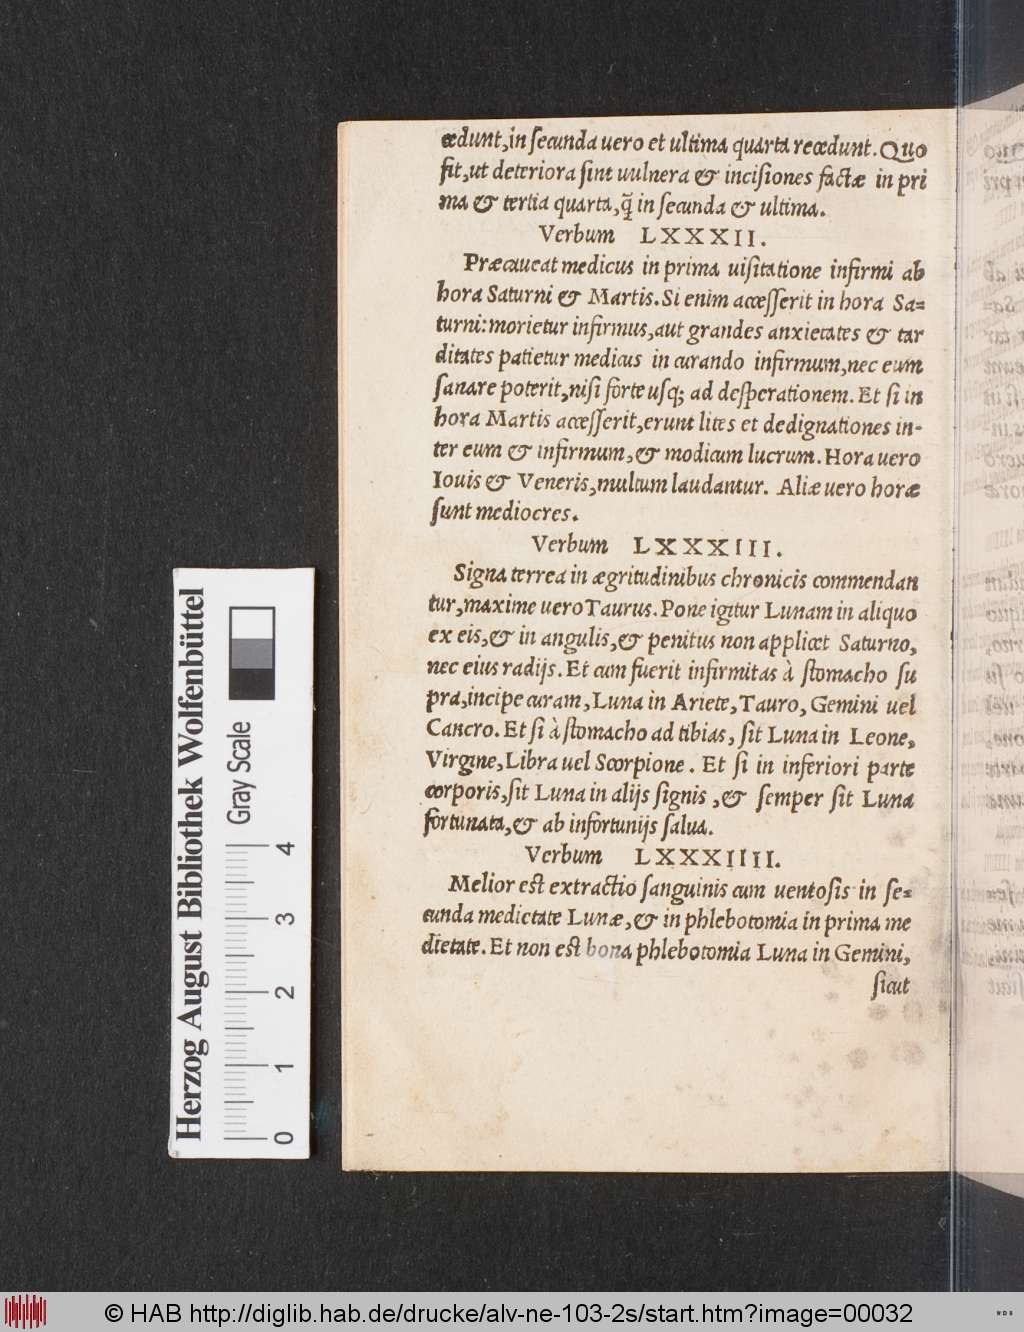 cedunt, in secunda uero et ultima quarta recedunt. Quo
fit, ut deteriora sint uulnera & incisiones factæ in pri
ma & tertia quarta, q̃ in secunda & ultima.
Verbum LXXXII.
Præcaueat medicus in prima uisitatione infirmi ab
hora Saturni & Martis. Si enim accesserit in hora Sa=
turni: morietur infirmus, aut grandes anxietates & tar
ditates patietur medicus in curando infirmum, nec eum
sanare poterit, nisi forte usq; ad desperationem. Et si in
hora Martis accesserit, erunt lites et dedignationes in-
ter eum & infirmum, & modicum lucrum. Hora uero
Iouis & Veneris, multum laudantur. Aliæ uero horæ
sunt mediocres.
Verbum LXXXIII.
Signa terrea in ægritudinibus chronicis commendan
tur, maxime uero Taurus. Pone igitur Lunam in aliquo
ex eis, & in angulis, & penitus non applicet Saturno,
nec eius radijs. Et cum fuerit infirmitas à stomacho su
pra, incipe curam, Luna in Ariete, Tauro, Gemini uel
Cancro. Et si à stomacho ad tibias, sit Luna in Leone,
Virgine, Libra uel Scorpione. Et si in inferiori parte
corporis, sit Luna in alijs signis, & semper sit Luna
fortunata, & ab infortunijs salua.
Verbum LXXXIIII.
Melior est extractio sanguinis cum uentosis in se=
cunda medietate Lunæ, & in phlebotomia in prima me
dietate. Et non est bona phlebotomia Luna in Gemini,
sicut
Herzog August Bibliothek Wolfenbüttel
Gray Scale
0 1 2 3 4
© HAB http://diglib.hab.de/drucke/alv-ne-103-2s/start.htm?image=00032